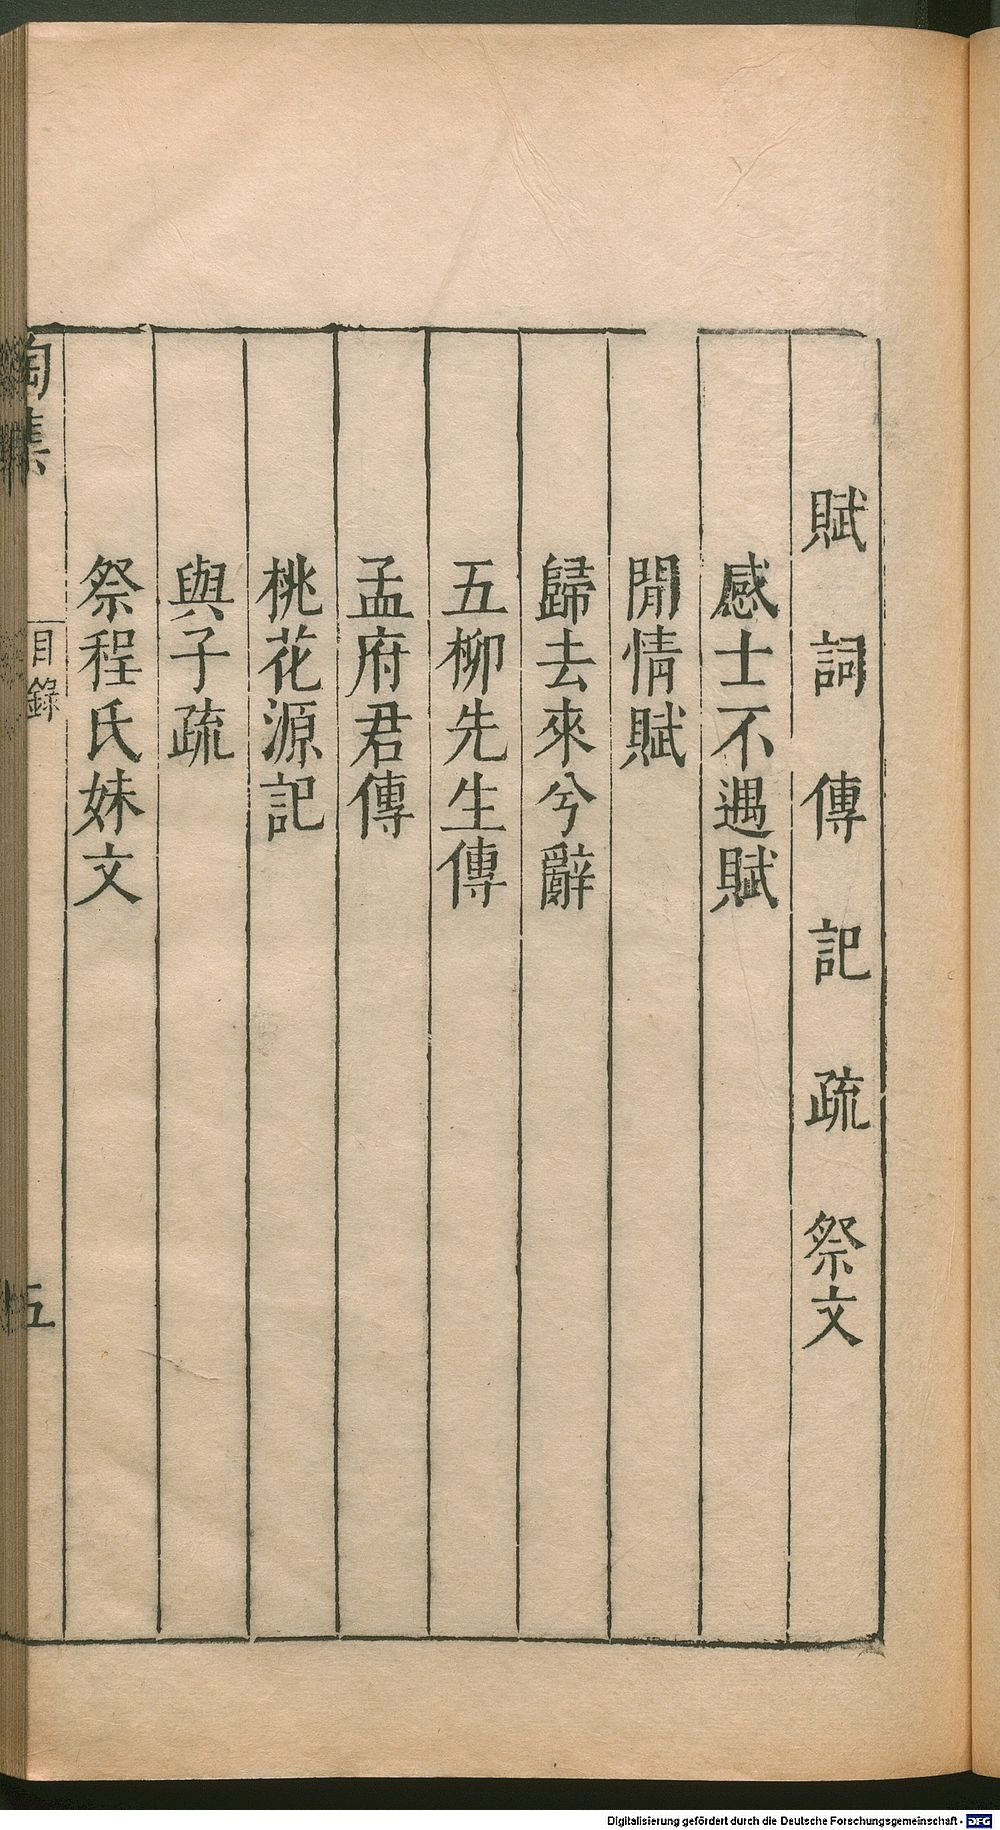 賦 詞 傳 記 疏 祭文
感士不遇賦
閒情賦
歸去來兮辭
五柳先生傳
孟府君傳
桃花源記
與子疏
祭程氏妹文
陶集 目錄 五
Digitalisierung gefördert durch die Deutsche Forschungsgemeinschaft - DFG